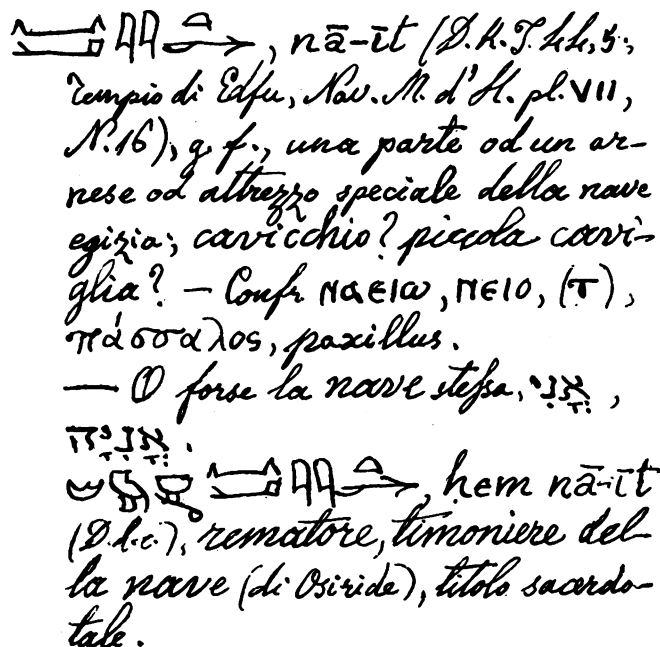 , nā-īt (D.K.T. LL, 5;
Tempio di Edfu, Nav. M. d'H. pl. VII,
N. 16), g. f., una parte od un ar-
nese od attrezzo speciale della nave
egizia; cavicchio? piccola cavi-
glia? — Confr. ⲛⲁⲉⲓⲱ, ⲛⲉⲓⲟ, (ⲧ),
πάσσαλος, paxillus.
— O forse la nave stessa, אֳנִי,
אֳנִיָּה.
, ḥem nā-īt
(D. l. c.), rematore, timoniere del-
la nave (di Osiride), titolo sacerdo-
tale.